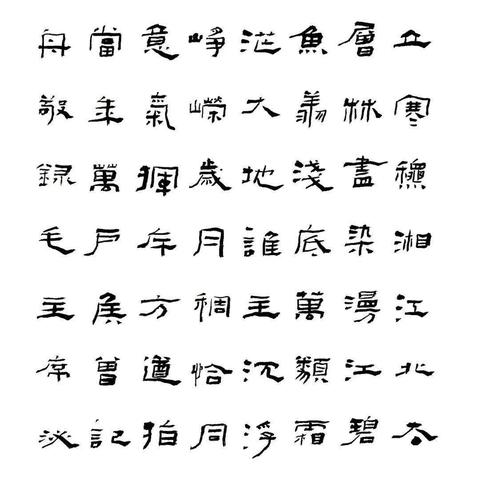 立寒穐湘江北去
層林盡染漫江碧
魚翔淺底萬類霜
茫大地誰主沉浮
崢嶸歲月稠恰同
意氣揮斥方遒指
當年萬戶侯曾記
舟敬録毛主席沁